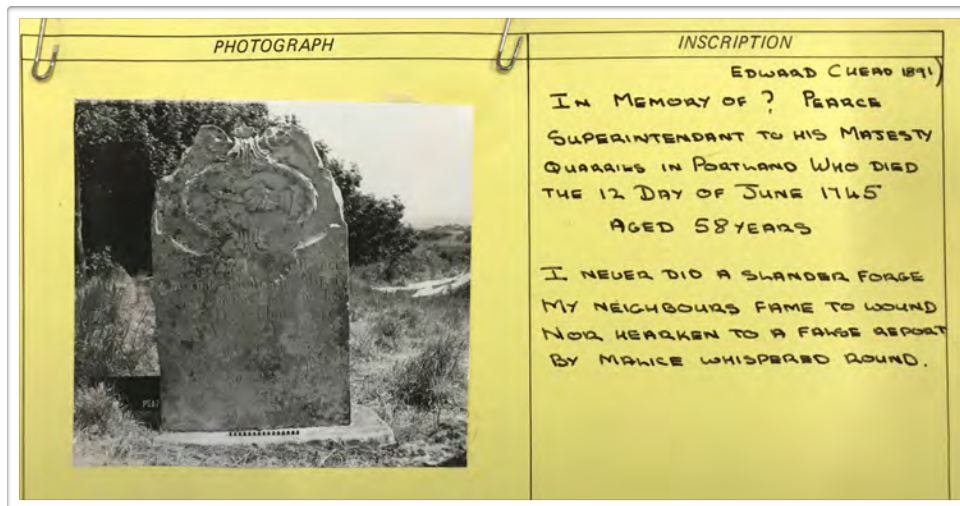 PHOTOGRAPH
INSCRIPTION
EDWARD CHEAD 1891)
IN MEMORY OF ? PEARCE
SUPERINTENDANT TO HIS MAJESTY
QUARRIES IN PORTLAND WHO DIED
THE 12 DAY OF JUNE 1745
AGED 58 YEARS
I NEVER DID A SLANDER FORGE
MY NEIGHBOURS FAME TO WOUND
NOR HEARKEN TO A FALSE REPORT
BY MALICE WHISPERED ROUND.